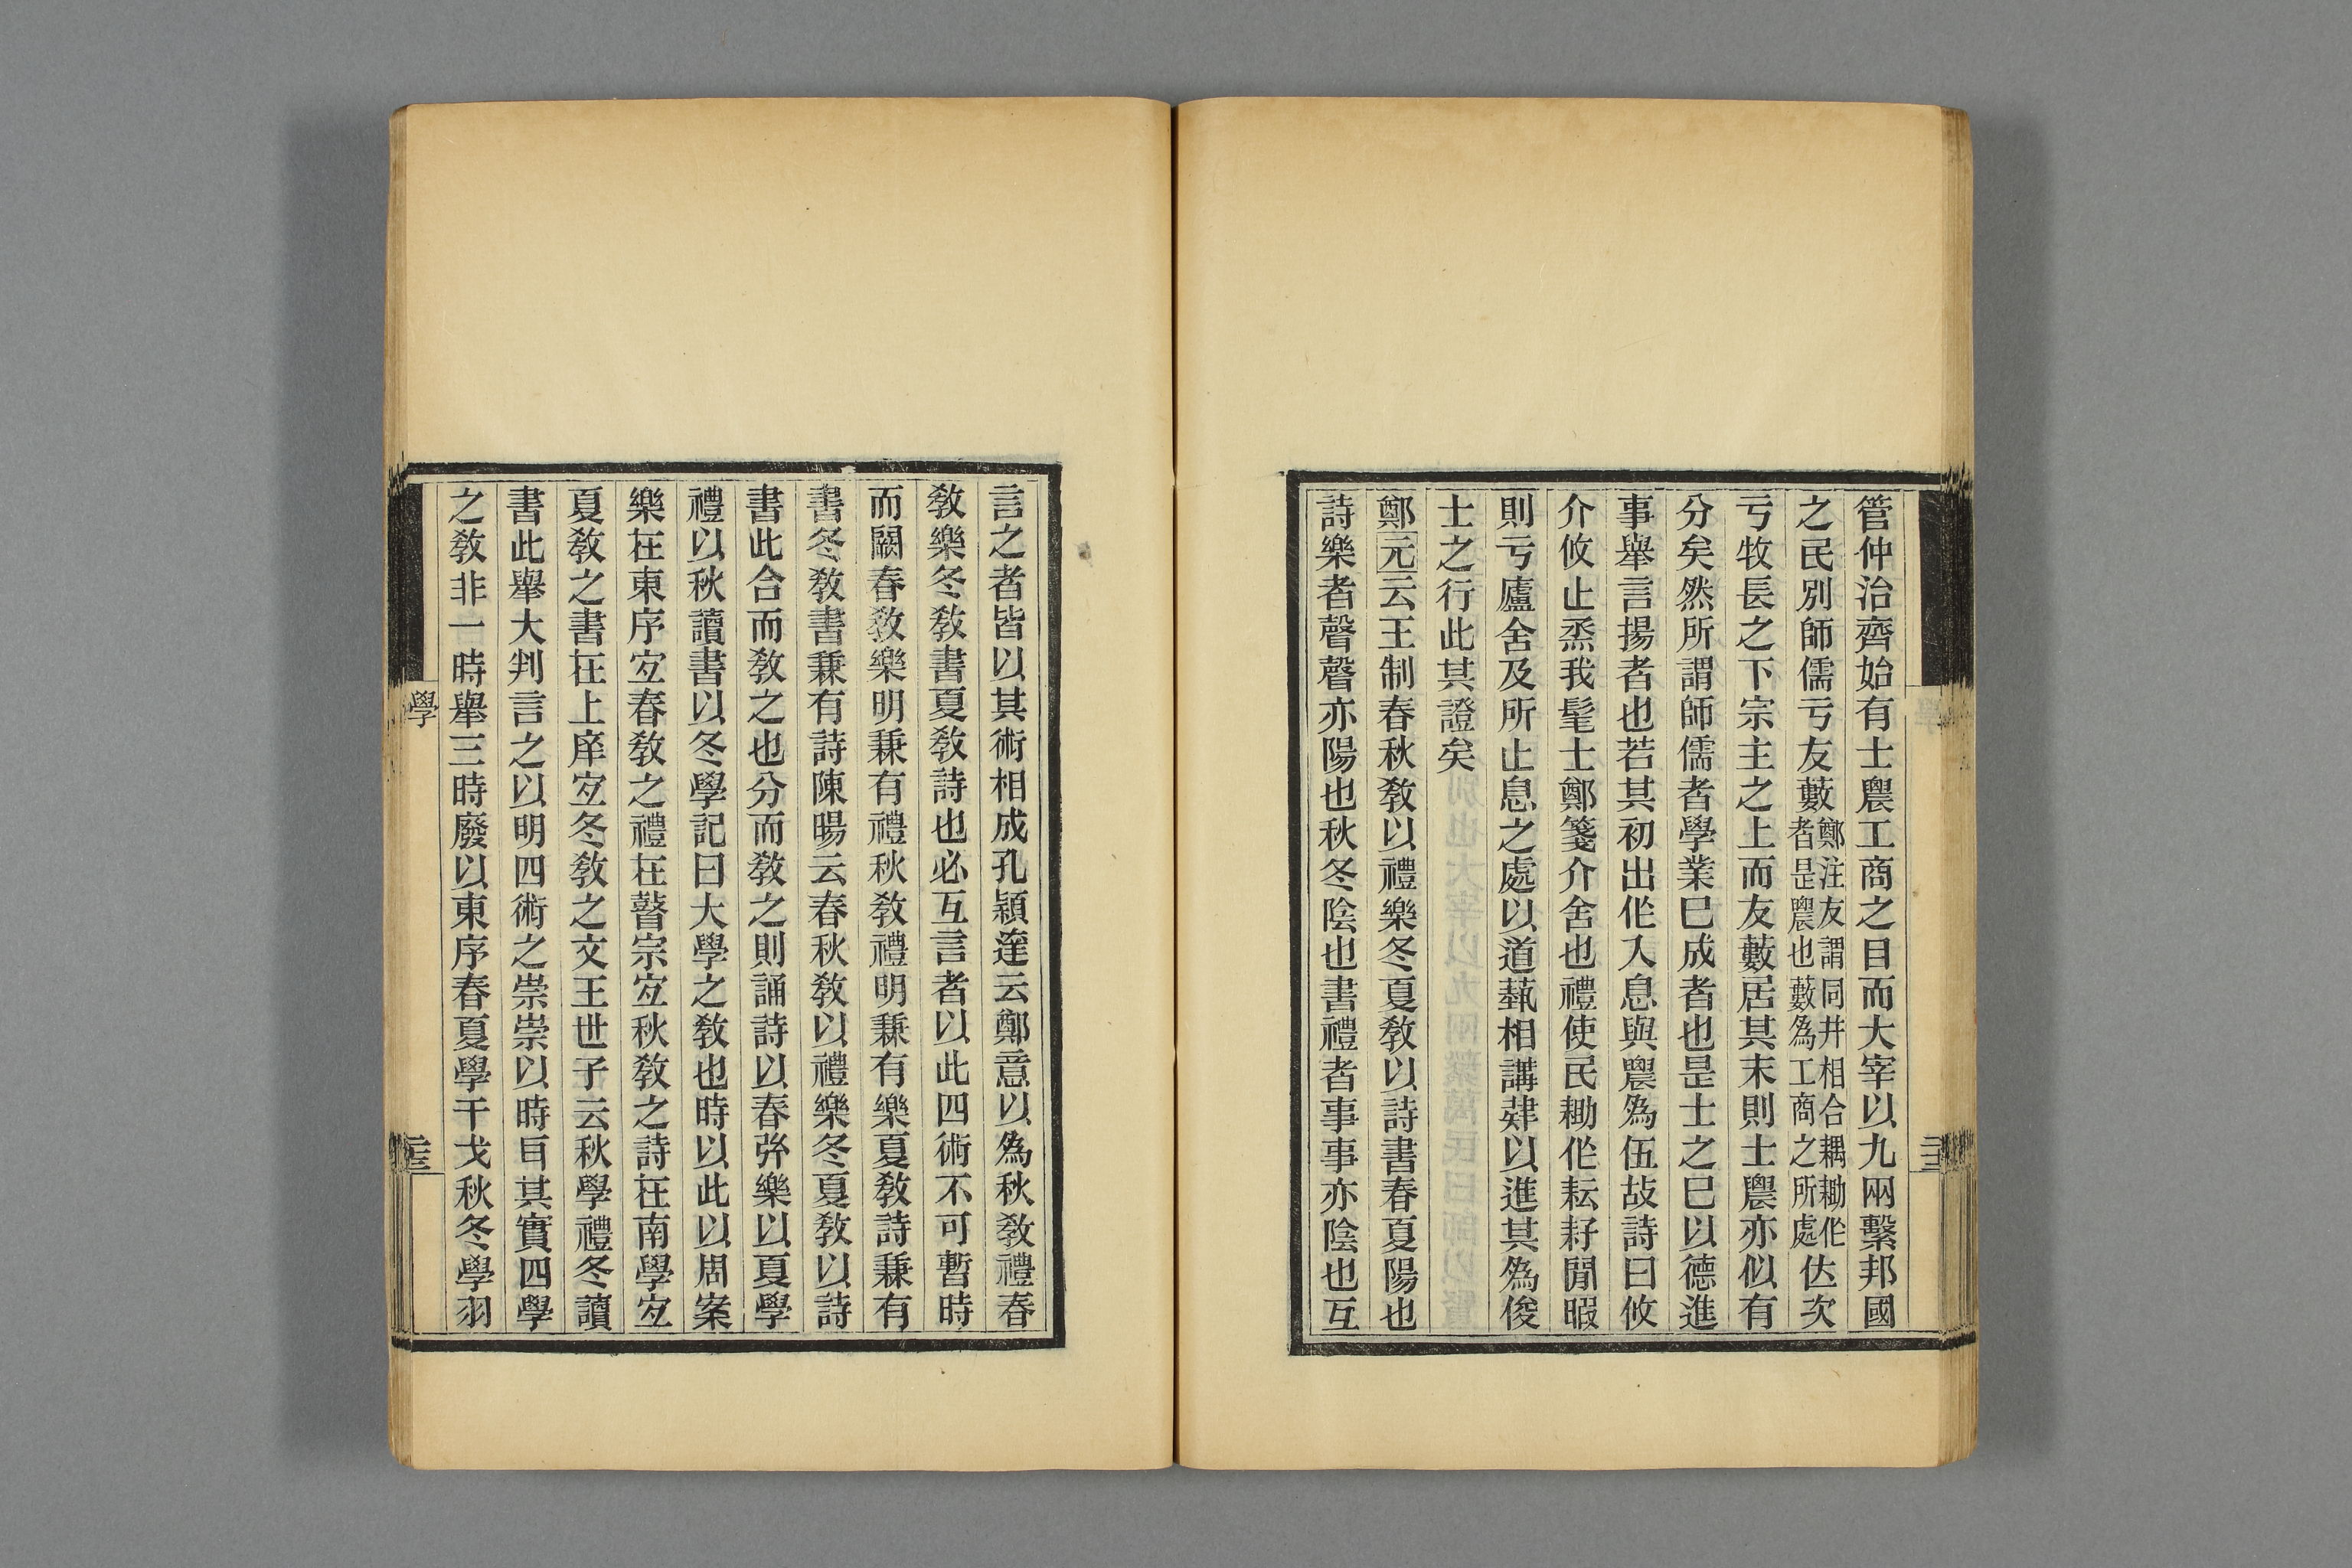 管仲治齊始有士農工商之目而大宰以九兩繫邦國
之民別師儒亏友藪鄭注友謂同井相合耦耡作者是農也藪為工商之所處佐次
亏牧長之下宗主之上而友藪居其末則士農亦似有
分矣然所謂師儒者學業已成者也是士之已以德進
事舉言揚者也若其初出作入息與農為伍故詩曰攸
介攸止烝我髦士鄭箋介舍也禮使民耡作耘耔閒暇
則亏廬舍及所止息之處以道蓺相講肄以進其為俊
士之行此其證矣
鄭元云王制春秋教以禮樂冬夏教以詩書春夏陽也
詩樂者聲聲亦陽也秋冬陰也書禮者事事亦陰也互
言之者皆以其術相成孔穎達云鄭意以為秋教禮春
教樂冬教書夏教詩也必互言者以此四術不可暫時
而闕春教樂明兼有禮秋教禮明兼有樂夏教詩兼有
書冬教書兼有詩陳暘云春秋教以禮樂冬夏教以詩
書此合而教之也分而教之則誦詩以春弦樂以夏學
禮以秋讀書以冬學記曰大學之教也時以此以周案
樂在東序宜春教之禮在瞽宗宜秋教之詩在南學宜
夏教之書在上庠宜冬教之文王世子云秋學禮冬讀
書此舉大判言之以明四術之崇崇以時耳其實四學
之教非一時舉三時廢以東序春夏學干戈秋冬學羽
學
二十三